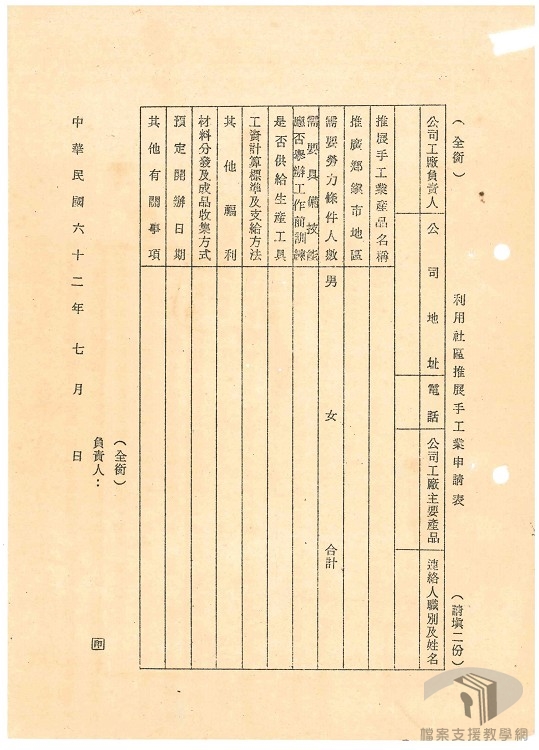 （全銜）　利用社區推展手工業申請表　（請填二份）
公司工廠負責人　公司地址　電話　公司工廠主要產品　連絡人職別及姓名
推展手工業產品名稱
推廣鄉鎮市地區
需要勞力條件人數　男　女　合計
需要具備技能
應否舉辦工作前訓練
是否供給生產工具
工資計算標準及支給方法
其他福利
材料分發及成品收集方式
預定開辦日期
其他有關事項
（全銜）
負責人：　印
中華民國六十二年七月　日
檔案支援教學網